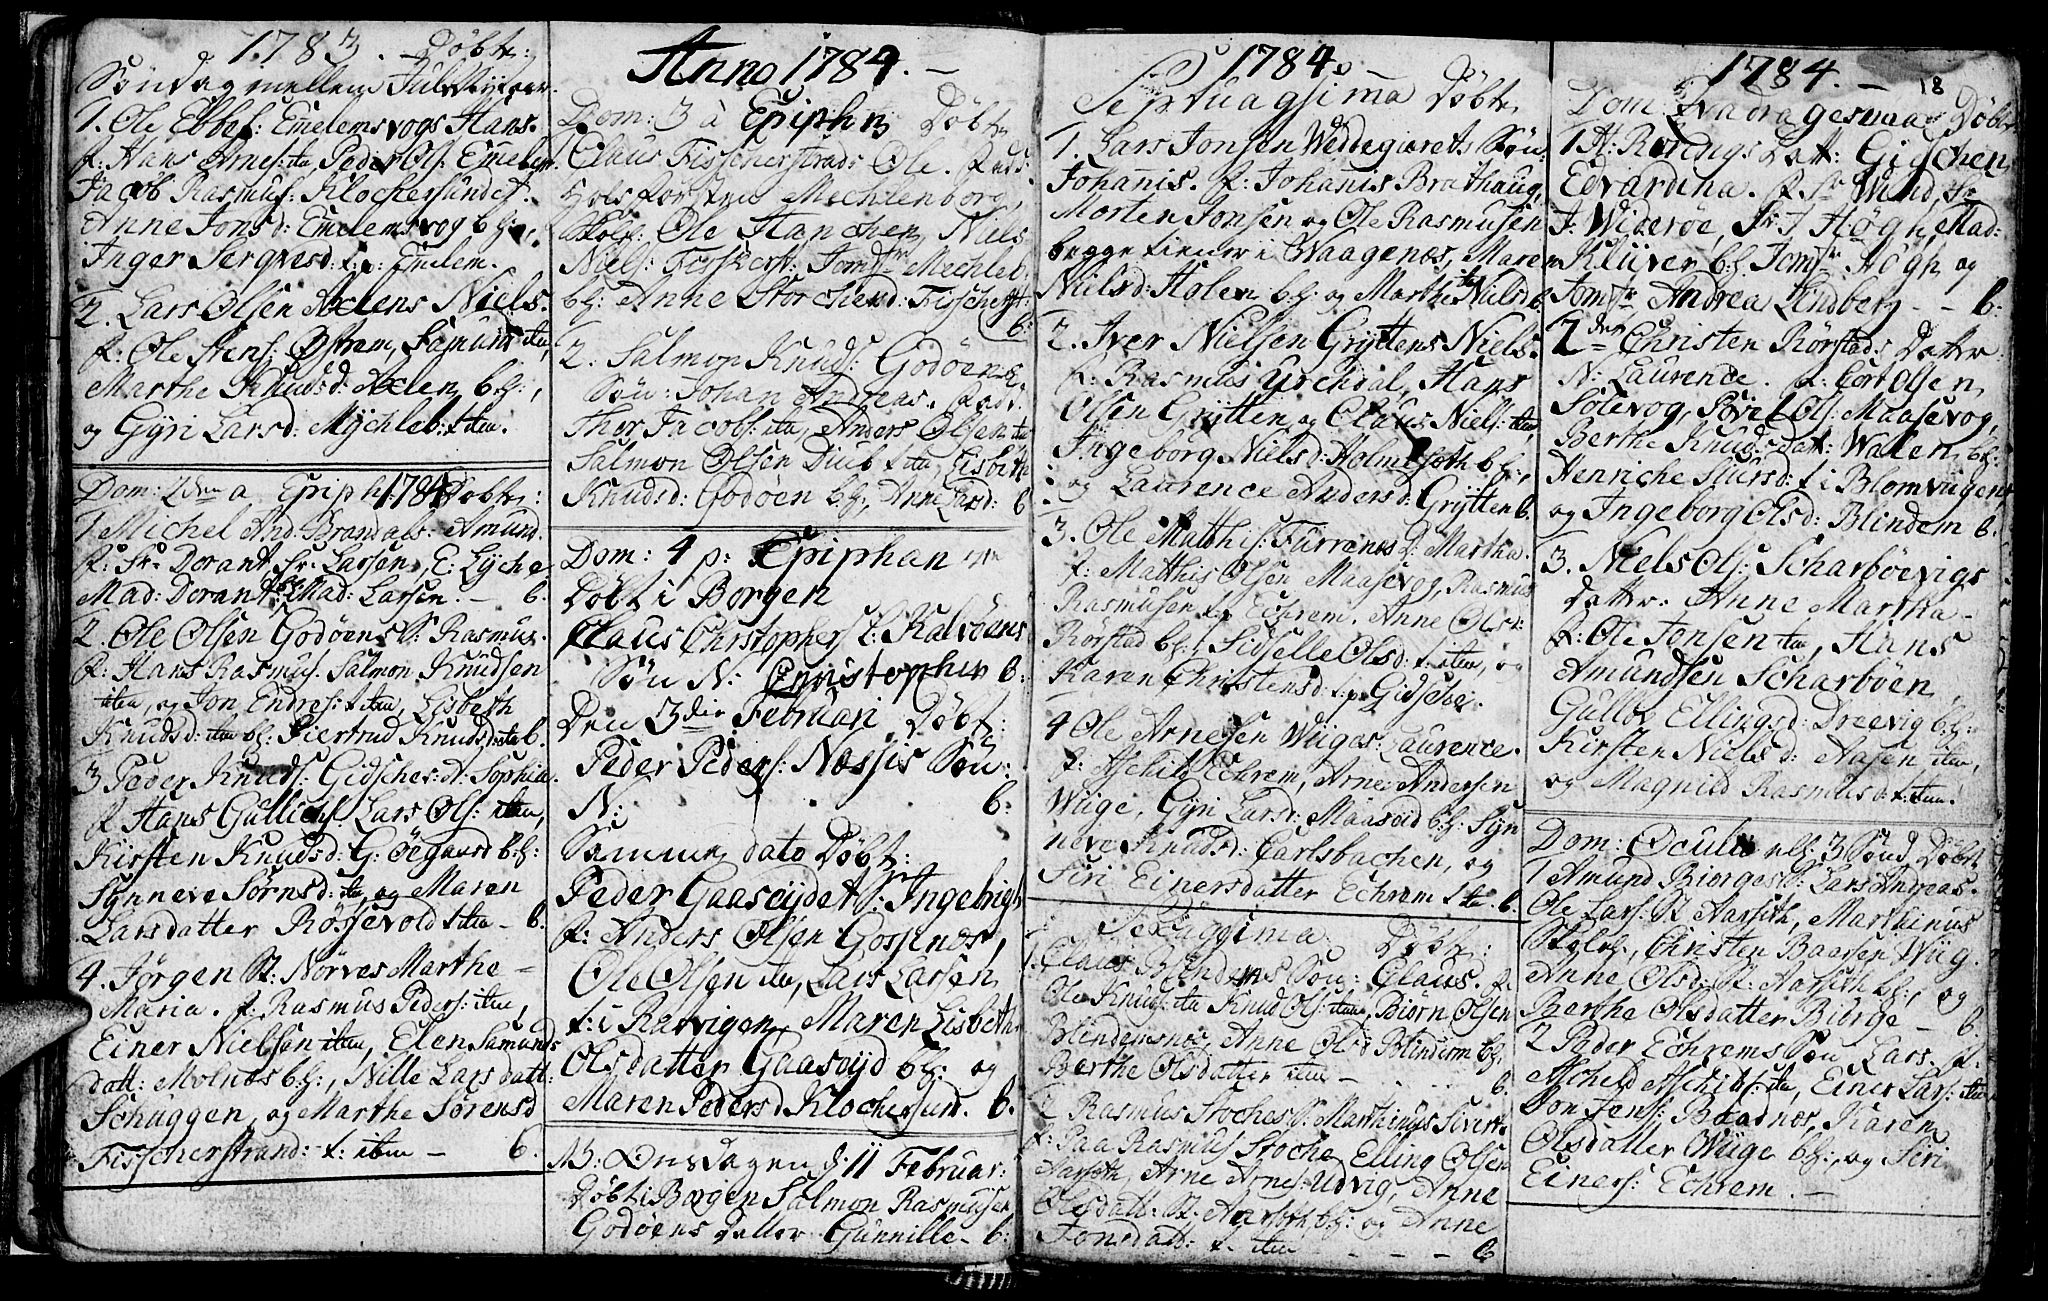 1783. Døbte:
Søndag mellem Juul og Nytaar
1. Ole Ebbes: Emelemsvogs Hans.
f: Hans Arnes: itm, Peder Ols: Emelem
Jacob Rasmus: Klockersundet.
Anne Jonsd: Emelemsvog b:f:,
Inger Sergvesd: t: Emelem.
2. Lars Olsen Axlens Niels.
f: Ole Stens: Østrem, Samund itm,
Marthe Knudsd: Axlen b:f:,
og Gÿri Larsd: Mÿchleb: t: itm.
Dom: 2den a Epiph 1784 Døbte:
1 Michel And: Brandals: Amund.
f: Sr. Dorant, Sr. Larsen, E: Lÿche
Mad: Dorant, Mad: Larsen. – 6.
2. Ole Olsen Godøens S: Rasmus.
f: Hans Rasmus. Salmon Knudsen
itm, og Jon Endres: t: itm, Lisbeth
Knudsd: itm b:f: Giertrud Knudsd: itm 6.
3 Peder Knuds: Gidsches: d. Sophia
f Hans Gullichs: Lars Ols: itm,
Kirsten Knudsd: G: Øegaard b:f:
Sÿnneve Sørnsd: itm og Maren
Larsdatter Rossevold t: itm – 6.
4. Jørgen St: Nørves Marthe –
Maria. f: Rasmus Peders: itm,
Einer Nielsen itm, Elen Samunds
datt: Molnæs b:f:, Nille Lars datt:
Schuggen, og Marthe Sørensd
Fisscherstrand: t: itm – 6.
Anno 1784. –
Dom: 3 à Epiphn Døbte
1 Claus Fisscherstrads Ole. Fadd:
Mechlenborg,
Ole Hanchen, Niels
Niels: Fisskerst: Jomfr Mechleb.
b:f: Anne Storchersd: Fisscherst:
6:
2. Salmon Knuds: Godøens
Søn: Johan Andreas. Fadd:
Ther Jacobs: itm, Anders Olsen itm
Salmon Olsen Diub t: itm, Lisbeth
Knudsd: Godøen b:f:, Anne Larsd: 6
Dom: 4 p: Epiphan
Døbt i Borgen
Claus Christophers: Kalvøens
Søn N: Christopher 6:
Den 3die Februari Døbt:
Peder Peders: Næssis Søn:
N: 6:
Samme dato Døbt:
Peder Gaaseijdet S: Ingebrigt
f: Anders Olsen Gossenæs,
Ole Olsen itm, Lars Larsen
t: i Ratvigen, Maren Lisbeth
Olsdatter Gaaseijd b:f: og
Maren Pedersd Klockersund. 6.
NB: Onsdagen d: 11 Februar:
Døbt i Borgen Salmon Rasmusen
Godøens datter Gunnille – 6:
1784.
Septuagsima Døbt
1. Lars Jonsen Weddegierets Søn:
Johanis. f: Johanis Brathaug,
Morten Jonsen og Ole Rasmusen
begge tiener i Waagenæs, Maren
Nielsd: Holen b:f: og Marthe Nielsd 6.
2. Iver Nielsen Grÿttens Niels.
f: Rasmus Ÿrchdal, Hans
Olsen Grÿtten og Claus Niels: itm,
Ingeborg Nielsd: Holmesæth b:f:,
og Laurence Andersd: Grÿtten 6.
3. Ole Matthis: Furrenæs D: Martha.
f: Matthis Olsen Maasevog, Rasmus
Rasmusen t: Echrem, Anne Olsd:
Rørstad b:f:, Sidselle Olsd: t: itm, og
Karen Christensd: t: p: Gidsche.
4 Ole Arnesen Wiiges: Laurence.
f: Aschild Echrem, Arne Andersen
Wiige, Gÿri Larsd: Maaseid b:f: Sÿn
neve Knudsd: Carlsbachen, og
Siri Einersdatter Echrem t: itm. 6.
Sexaggsima Døbt:
1. Claus Blindems Søn: Claus. f.
Ole Knuds: itm Knud Ols: itm, Biørn Olsen
Blindemsnæs, Anne Olsd Blindem b:f:
Berthe Olsdatter itm – 6.
2 Rasmus Stoches S: Marthinus Sivert.
f: Paa Rasmus Stoche, Elling Olsen
Aarseth, Arne Arnes: Udvig, Anne
Olsdatt: St. Aarseth b:f: og Anne
Jonsdatt: t. itm – – – 6
1784. – 18
Dom: Qvadragesima Døbt
1 H: Rosings Datt: Gidschen
Edvardina. f. Sr Wind, Sr
J: Widerøe, Sr J Høgn, Mad:
Klüver b:f: Jomfr Høgh og
Jomfr Andrea Lindberg – – 6.
2den Christen Rørstads Datter
N: Laurence. f: Cort Olsen
Solevog, Povel Ols: Maasevog,
Berthe Knuds Datt: Walen b:f:
Henriche Siursd: t i Blomvigen,
og Ingeborg Olsd: Blindem 6.
3. Niels Ols: Scharbøevigs
Datter: Anne Martha –
f: Ole Jonsen itm, Hans
Amundsen Scharbøen,
Gulløv Ellingsd: Dreevig b:f:
Kirsten Niels d: Aasen itm,
og Magnild Rasmusd: t: itm.
Dom: Oculi elf: 3 Sønd: Døbt
1 Amund Biorges S: Lars Andreas.
Ole Lars: St Aarseth, Marthinus
Christen Baarsen Wiig.
Anne Olsd: St: Aarseth b:f:, og
Berthe Olsdatter Biorge – 6.
2 Peder Echrems Søn Lars. f.
Aschild Aschilds: itm, Einer Lars: itm
Jon Jens: Baadnæs, Karen
Olsdatter Wiige b:f:, og Siri
Einers: Echrem. –